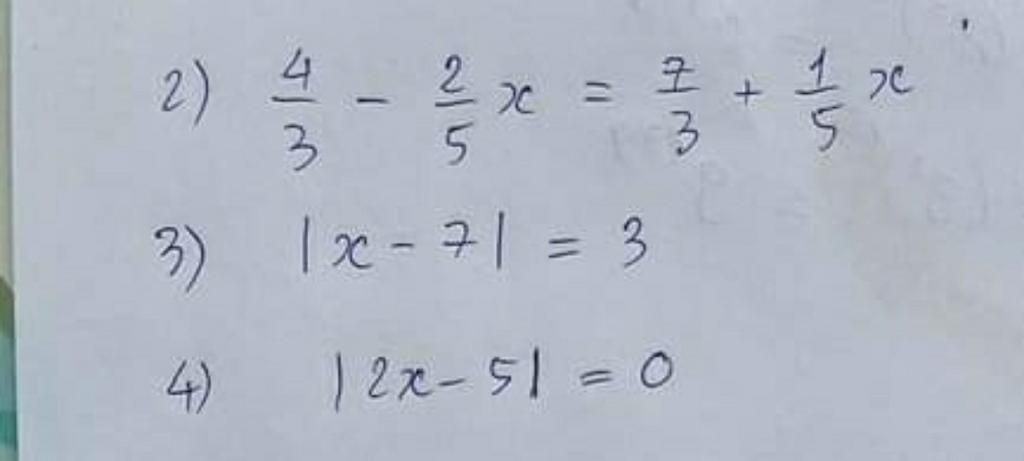 2) 4/3 - 2/5 x = 7/3 + 1/5 x
3) |x - 7| = 3
4) |2x - 5| = 0